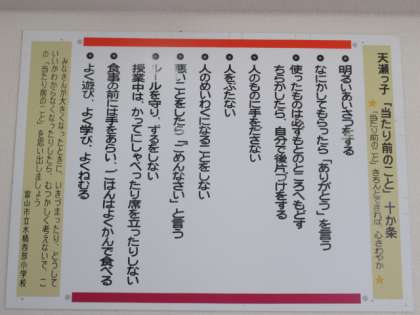 天瀬っ子「当たり前のこと」十か条
「当たり前のこと」きちんとできれば 心さわやか
明るいあいさつをする
なにかしてもらったら「ありがとう」を言う
使ったものは必ずもとのところへもどす
ちらかしたら、自分で後片づけをする
人のものに手をださない
人をぶたない
人のめいわくになることをしない
悪いことをしたら「ごめんなさい」と言う
ルールを守り、ずるをしない
授業中は、かってにしゃべったり席を立ったりしない
食事の前には手をあらい、ごはんはよくかんで食べる
よく遊び、よく学び、よくねむる
みなさんが大きくなったときに、いきづまったり、どうして
いいかわからなくなったりしたら、むつかしく考えないで、こ
の「当たり前のこと」を思い出しましょう
富山市立水橋西部小学校